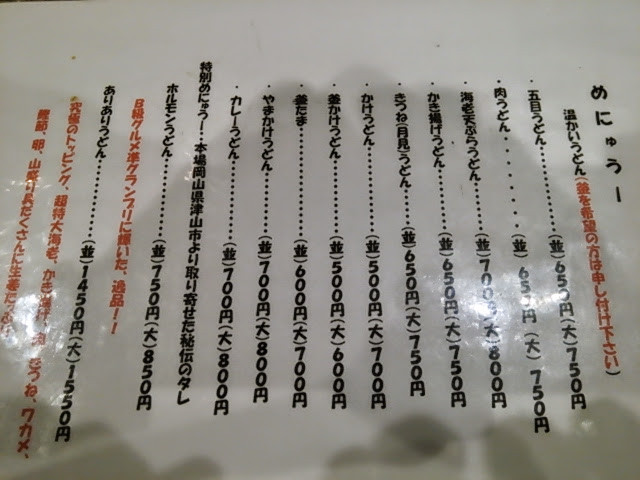 めにゅー
温かいうどん(釜を希望の方は申し付け下さい)
・五目うどん・・・・・・・・・・・・(並)650円(大)750円
・肉うどん・・・・・・・(並)650円(大)750円
・海老天ぷらうどん・・・・・・・(並)700円(大)800円
・かき揚げうどん・・・・・・・・・(並)650円(大)750円
・きつね(月見)うどん・・・・・・(並)650円(大)750円
・かけうどん・・・・・・・・・・・・・(並)500円(大)700円
・釜かけうどん・・・・・・・・・・・(並)500円(大)600円
・釜たま・・・・・・・・・・・・・・・・(並)600円(大)700円
・やまかけうどん・・・・・・・・・(並)700円(大)800円
・カレーうどん・・・・・・・・・・・(並)700円(大)800円
特別めにゅー!・本場岡山県津山市より取り寄せた秘伝のタレ
ホルモンうどん・・・・・・・・・・(並)750円(大)850円
B級グルメ準グランプリに輝いた、逸品!!
ありありうどん・・・・・・・・・・(並)1450円(大)1550円
究極のトッピング、超特大海老、かき揚げ、肉、きつね、ワカメ、
鰹節、卵、山盛り具だくさんに生姜たっぷり